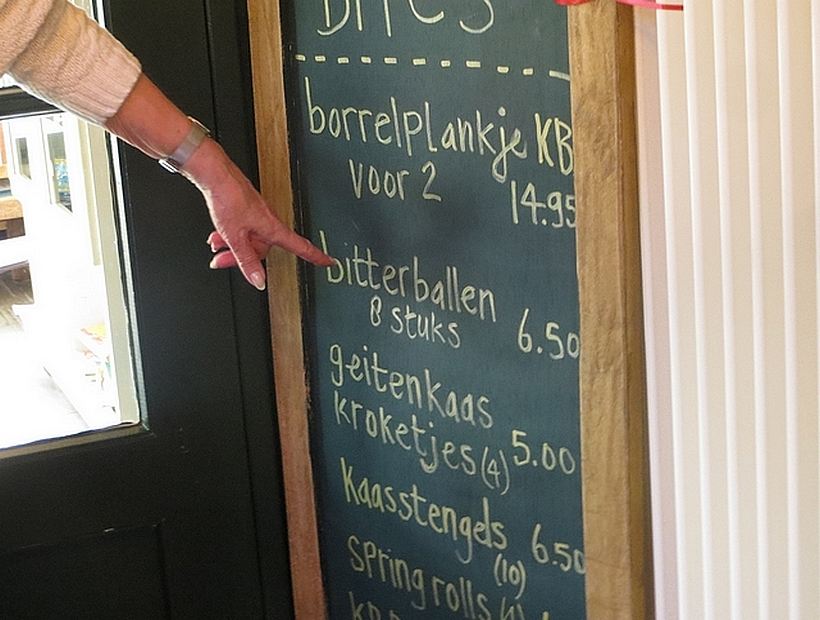 BITES
borrelplankje KB
voor 2 14.95
bitterballen
8 stuks 6.50
geitenkaas
kroketjes (4) 5.00
kaasstengels
(10) 6.50
spring rolls